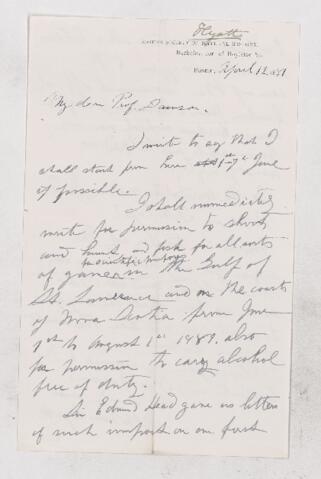 Hyatt
BOSTON SOCIETY OF NATURAL HISTORY,
Berkeley, cor. of Boylston St.
Boston, April 12, 1887
My dear Prof. Dawson.
I write to say that I
shall start from here 1st - 7th June
if possible.
I shall immediately
write for permission to shoot,
and hunt, and fish for all sorts
for scientific purposes
of game in the Gulf of
St. Lawrence and on the coasts
of Nova Scotia from June
1st to August 1st 1887. also
for permission to carry alcohol
free of duty.
Sir Edmund Head gave us letters
of such import on our first